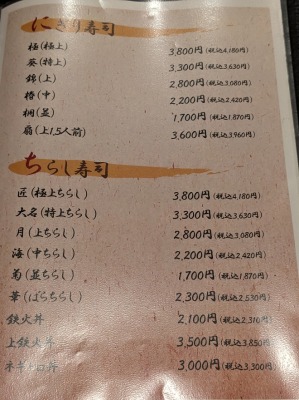 にぎり寿司
極(極上) 3,800円(税込4,180円)
葵(特上) 3,300円(税込3,630円)
錦(上) 2,800円(税込3,080円)
椿(中) 2,200円(税込2,420円)
桐(並) 1,700円(税込1,870円)
扇(上1.5人前) 3,600円(税込3,960円)
ちらし寿司
匠(極上ちらし) 3,800円(税込4,180円)
大名(特上ちらし) 3,300円(税込3,630円)
月(上ちらし) 2,800円(税込3,080円)
海(中ちらし) 2,200円(税込2,420円)
菊(並ちらし) 1,700円(税込1,870円)
華(ばらちらし) 2,300円(税込2,530円)
鉄火丼 2,100円(税込2,310円)
上鉄火丼 3,500円(税込3,850円)
ネギトロ丼 3,000円(税込3,300円)